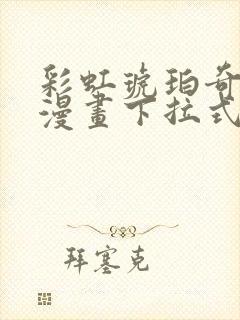 彩虹琥珀奇
漫畫下拉式
拜塞克